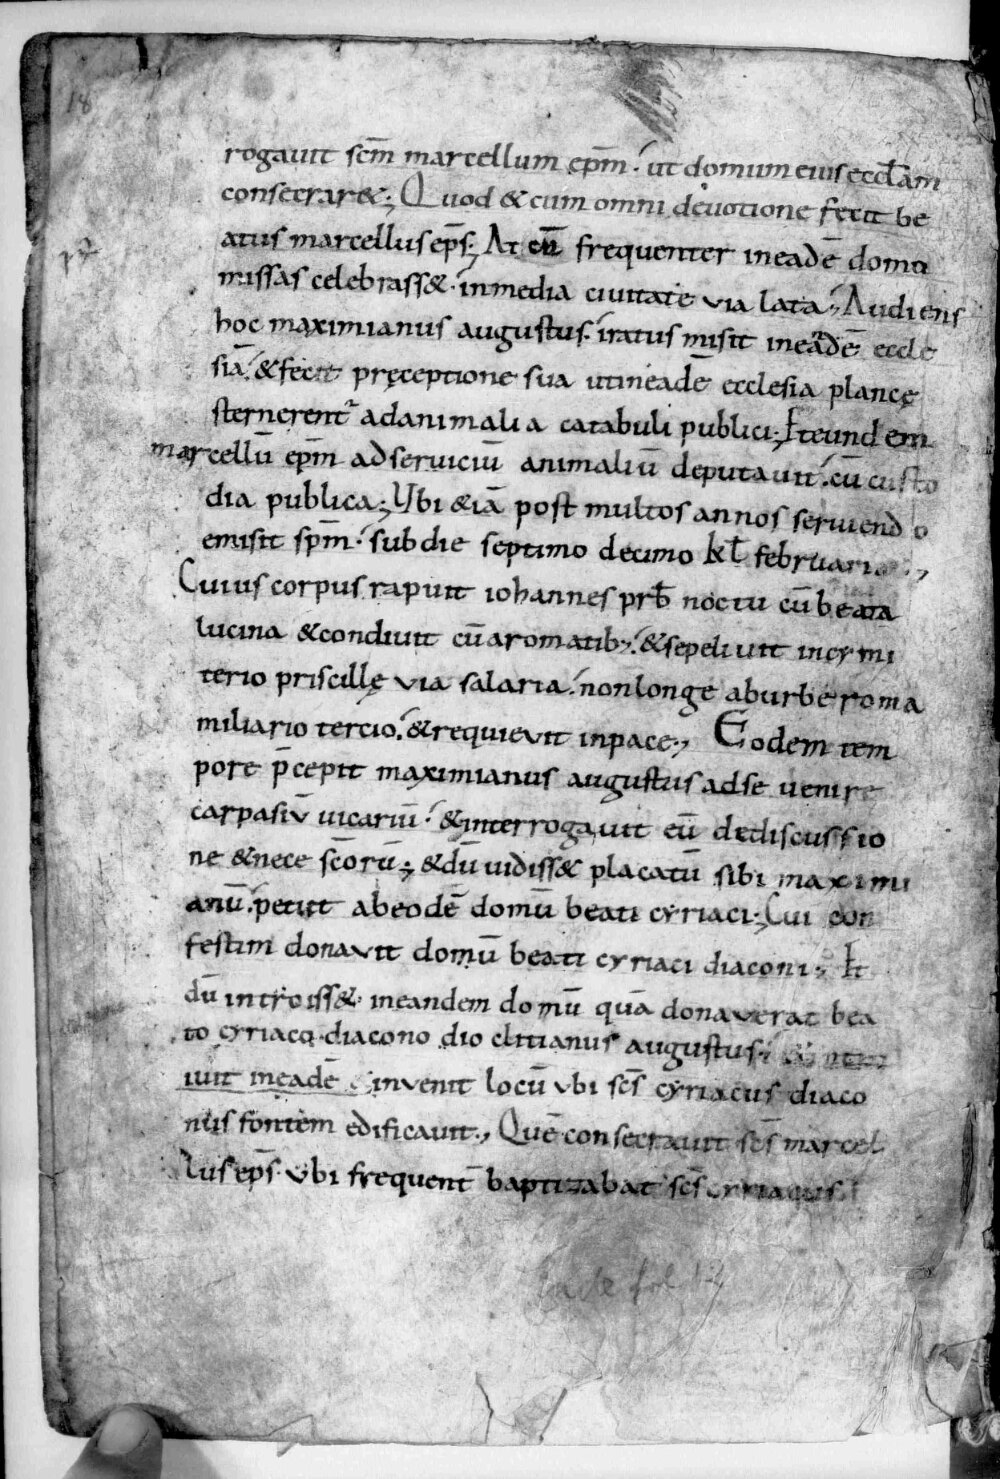 18
rogauit scm̄ marcellum ep̄m. ut domum eius eccl̄am
consecrar&; Quod & cum omni deuotione fecit be
atus marcellus ep̄s; At cū frequenter in eadē domo
missas celebrass& in media ciuitate via lata; Audiens
hoc maximianus augustus. iratus misit in eadē eccle
siā. & fecit pręceptione sua ut in eadē ecclesia plancę
sternerent᷑ ad animalia catabuli publici; Et eundem
marcellū ep̄m ad seruiciū animaliū deputauit. cū custo
dia publica; Vbi & iā post multos annos seruiendo
emisit sp̄m. sub die septimo decimo kl̄ februaria
Cuius corpus rapuit iohannes prb̄ noctu cū beata
lucina & condiuit cū aromatib; & sepeliuit in cymi
terio priscillę via salaria. non longe ab urbe roma
miliario tercio. & requievit in pace; Eodem tem
pore p̄cepit maximianus augustus ad se uenire
carpasiū uicariū. & interrogauit eū de discussio
ne & nece sc̄orū; & dū uidiss& placatū sibi maximi
anū. petiit ab eodē domū beati cyriaci; Cui con
festim donavit domū beati cyriaci diaconi; Et
dū introiss& in eandem domū quā donaverat bea
to cyriaco diacono dioclitianus augustus.
iuit in eadē invenit locū vbi sc̄s cyriacus diaco
nus fontem edificauit; Quē consecrauit sc̄s marcel
lus ep̄s. vbi frequent̄ baptizabat sc̄s cyriacus